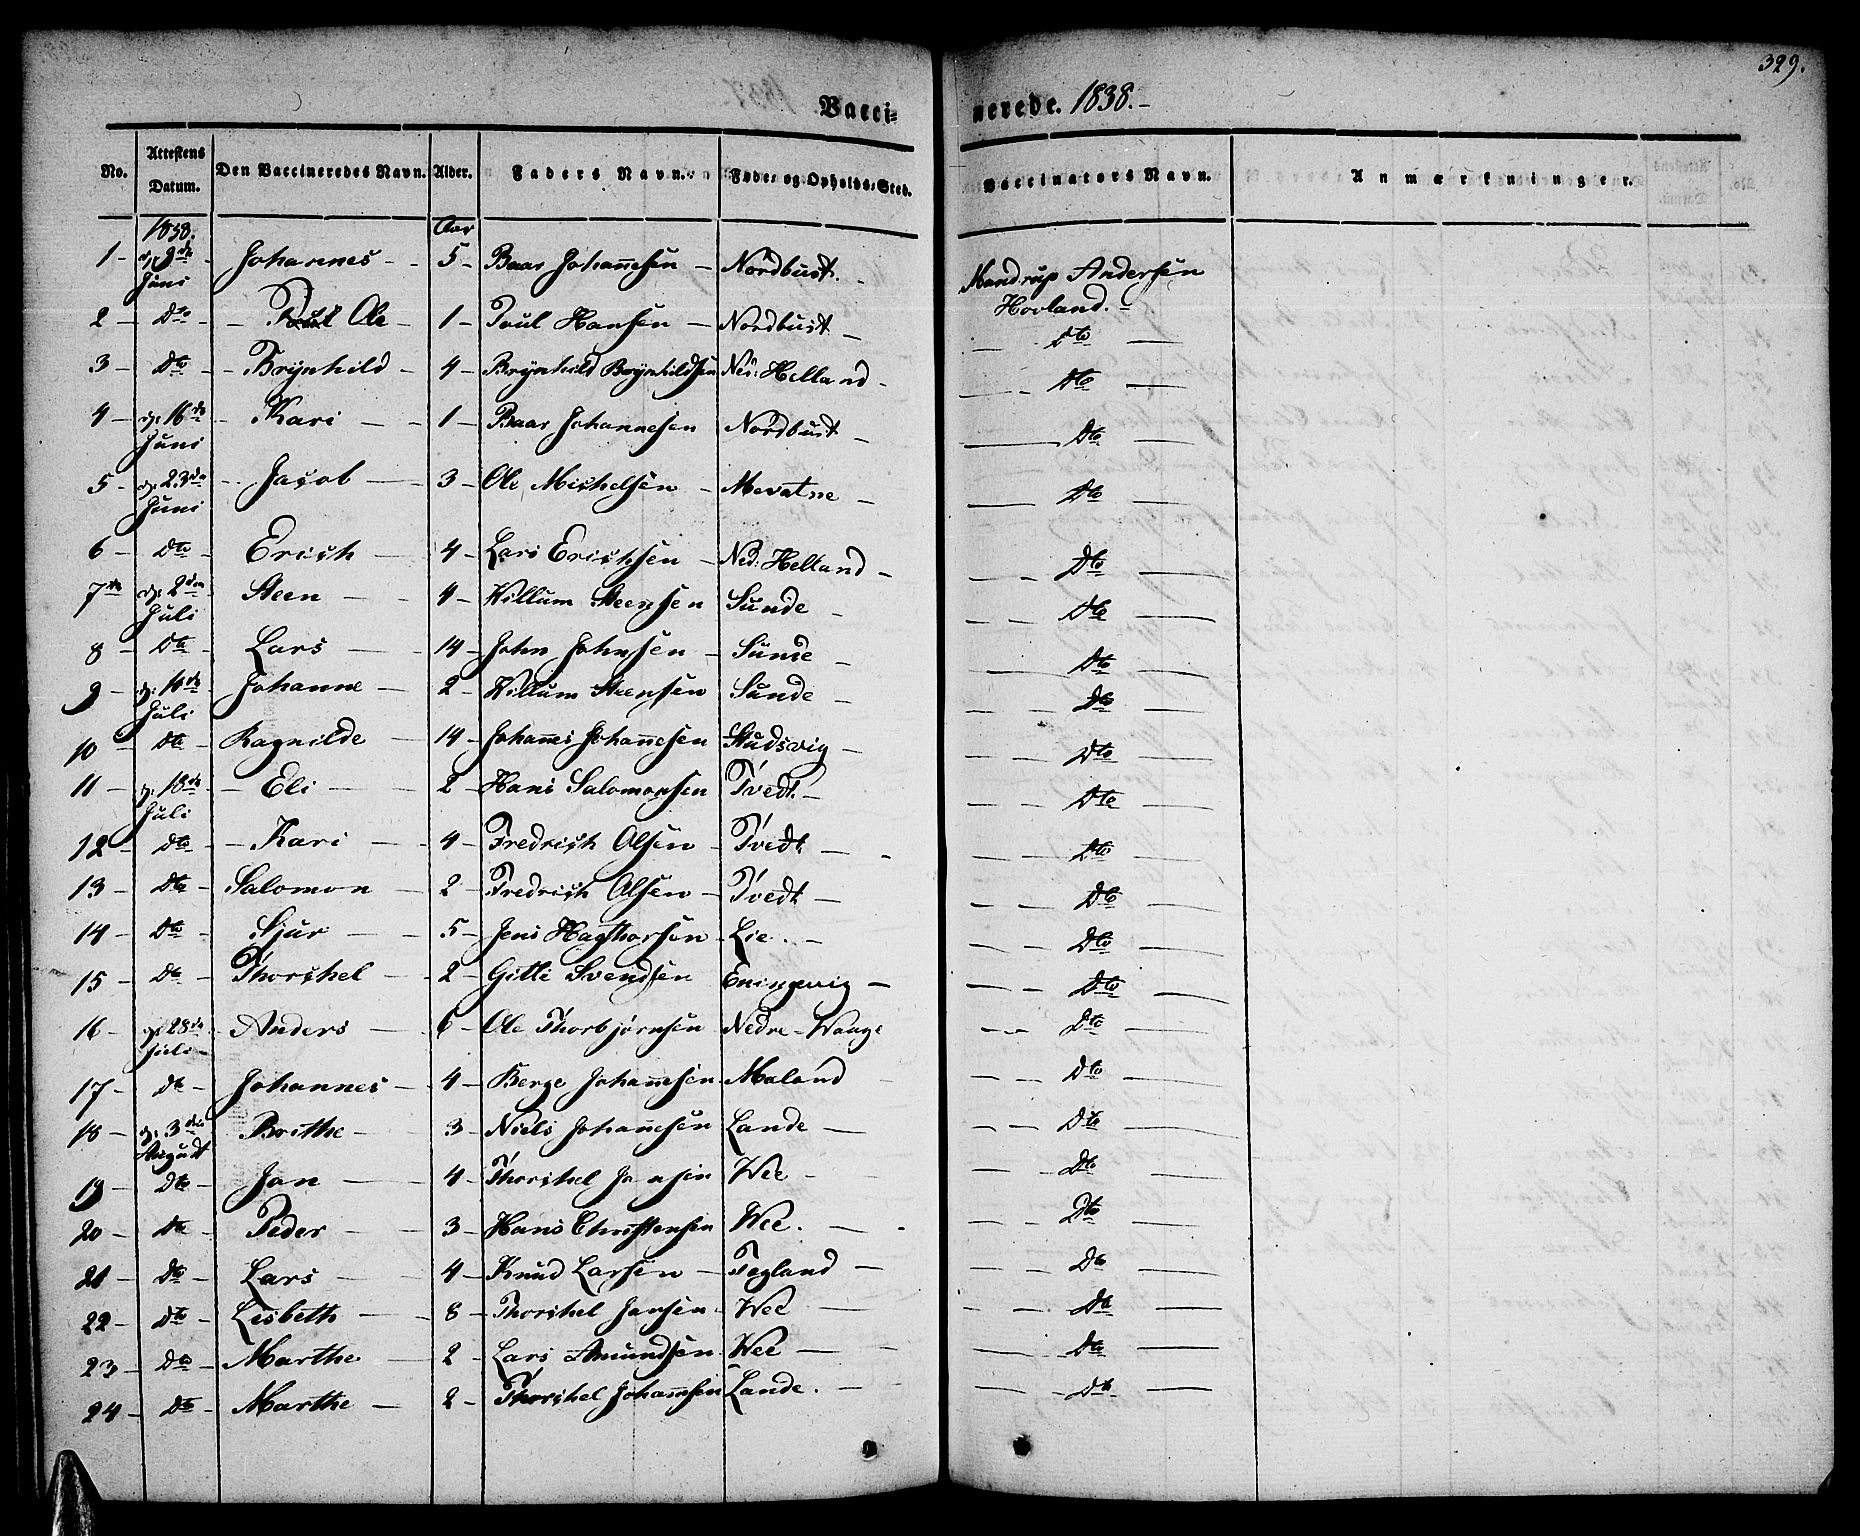 329.
Vacci= nerede. 1838.-
No. Attestens Datum. Den Vaccineredes Navn. Alder. Faders Navn. Føde= og Opholds=Sted. Vaccinators Navn. Anmærkninger.
1838. Aar
1 - d. 9de Juni - Johannes - - 5 - Baar Johannesen - Nordhust. - Mandrup Andersen Hovland. -
2 - Dto - - Ole - 1 - Poul Hansen - Nordhust - — Dto —
3 - Dto - Brynhild - 4 - Brynhild Brynhildsen Ned: Helland - — Dto —
4 - d. 16de Juni - Kari - - 1 - Baar Johannesen Nordhust - — Dto —
5 - d. 23de Juni - Jacob - 3 - Ole Michelsen - Mevatne - — Dto —
6 - Dto - Erich - 4 - Lars Erichsen - Ned: Helland - — Dto —
7 d. 2den Juli Steen - - 4 - Willum Steensen Sunde - — Dto —
8 - Dto - Lars - 14 - John Johnsen - Sunde - — Dto —
9 - Juli Johanne - 2 - Willum Steensen Sunde - — Dto —
10 - Dto - Ragnilde - 14 - Johannes Johannesen Skudsvig - — Dto —
11 - d. 18de Juli - Eli - 2 - Hans Salomonsen Tvedt. - — Dto —
12 - Dto - Kari - 4 - Fredrich Olsen - Tvedt - — Dto —
13 - Dto Salomon - 2 - Fredrich Olsen - Tvedt - — Dto —
14 - Dto - Sjur - 5 - Jens Hagthorsen Lie. - — Dto —
15 - Dto Thorchel - 2 - Gitle Svendsen Eningvig - — Dto —
16 - d. 28de Juli - Anders - 6 - Ole Thorbjørnsen Nedre - Waage — Dto —
17 - Dto - Johannes - 4 - Berge Johannesen Maland — Dto —
18 - d. 3die August Brithe - 3 - Niels Johannesen Lande - — Dto —
19 - Dto - Jan - 4 - Thorchel Jansen Wee - — Dto —
20 - Dto Peder - 3 - Hans Christensen Wee. - — Dto —
21 - Dto - Lars - 4 - Knud Larsen - Tegland - — Dto —
22 - Dto - Lisbeth - 8 - Thorchel Jansen - Wee - — Dto —
23 - Dto - Marthe - 2 - Lars Amundsen Wee - — Dto —
24 - Dto - Marthe - 2 - Thorchel Johannesen Lande. - — Dto —